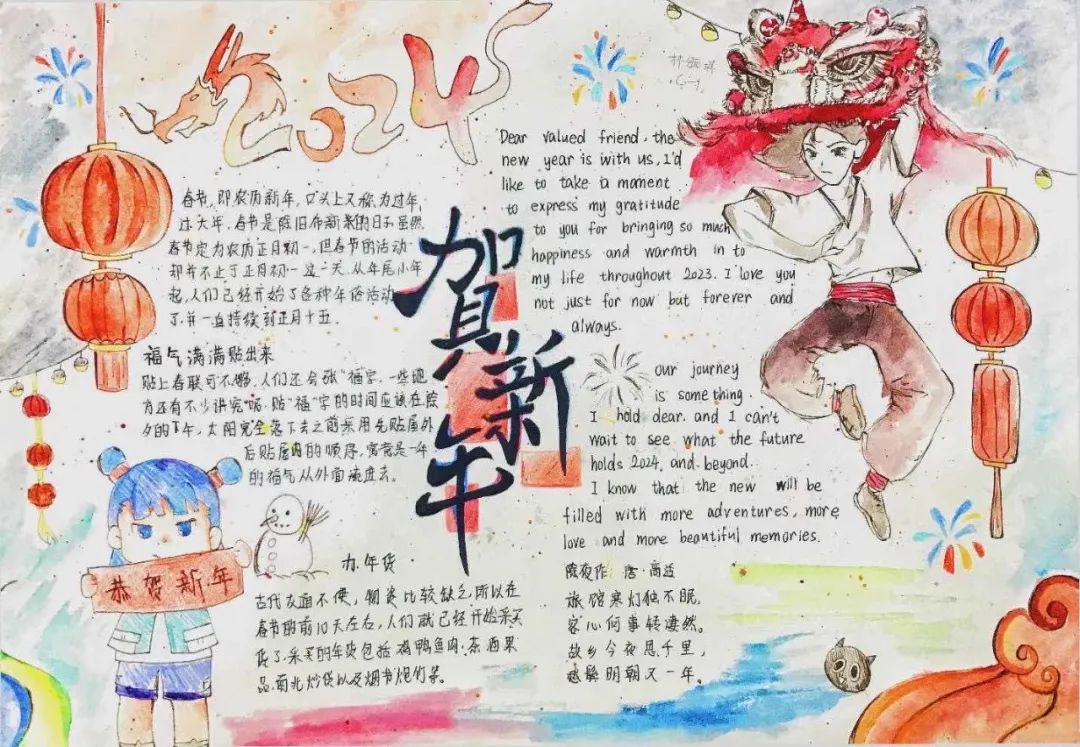 2024
春节,即农历新年,口头上又称为过年,
过大年。春节是除旧布新的日子虽然
春节定为农历正月初一,但春节的活动
却并不止于正月初一这一天。从年尾小年
起,人们已经开始了各种年俗活动
了.并一直持续到正月十五.
福气满满贴出来
贴上春联可不够,人们还会张"福字,一些地
方还有不少讲究呢.贴"福"字的时间应该在除
夕的下午,太阳完全落下去之前采用先贴屋外
后贴屋内的顺序,寓意是一年
的福气从外面流进去。
恭贺新年
办年货
古代交通不便,物资比较缺乏,所以在
春节的前10天左右,人们就已经开始采买
采买的年货包括鸡鸭鱼肉·茶酒果
品,南北炒货以及烟书炮竹等。
賀新年
Dear valued friend, the
new year is with us, I'd
like to take a moment
to express my gratitude
to you for bringing so much
happiness and warmth in to
my life throughout 2023. I love you
not just for now but forever and
always.
our journey
is something
I hold dear. and I can't
wait to see what the future
holds 2024, and beyond.
I know that the new will be
filled with more adventures, more
love and more beautiful memories.
除夜作 唐·高适
旅馆寒灯独不眠,
客心何事转凄然。
故乡今夜思千里,
明朝又一年。